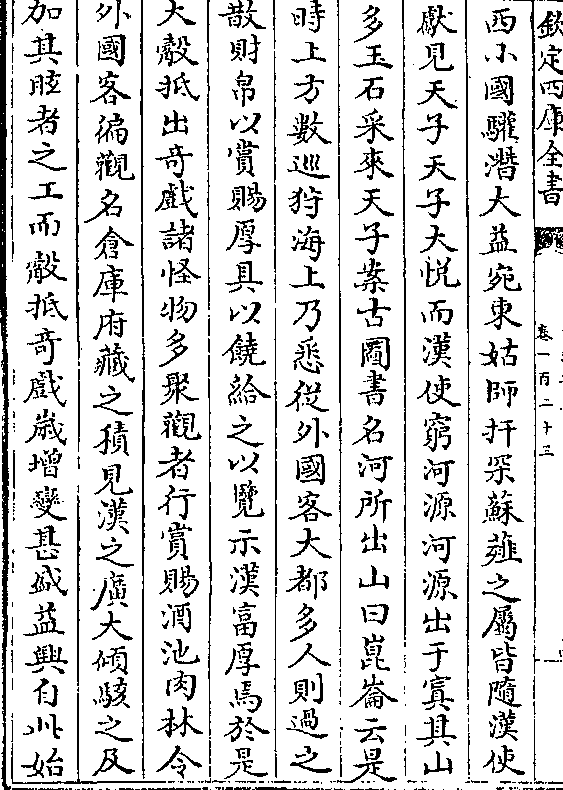 欽定四庫全書
卷一百二十三
西小國驩潛大益宛東姑師扞罙蘇薤之屬皆隨漢使
獻見天子天子大悅而漢使窮河源河源出于窴其山
多玉石采來天子案古圖書名河所出山曰崑崙云是
時上方數巡狩海上乃悉從外國客大都多人則過之
散財帛以賞賜厚具以饒給之以覽示漢富厚焉於是
大觳抵出奇戲諸怪物多聚觀者行賞賜酒池肉林令
外國客徧觀名倉庫府藏之積見漢之廣大傾駭之及
加其眩者之工而觳抵奇戲歲增變甚盛益興自此始